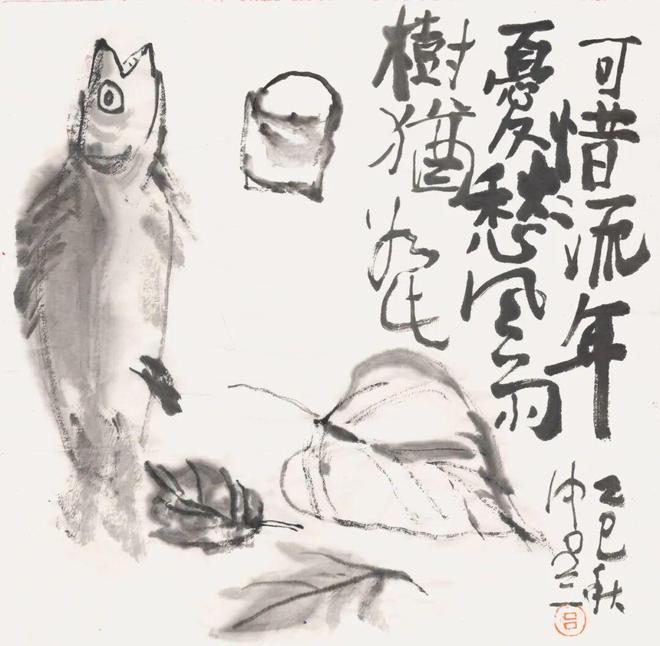 可惜流年
憂愁風雨
樹猶如此
乙巳秋